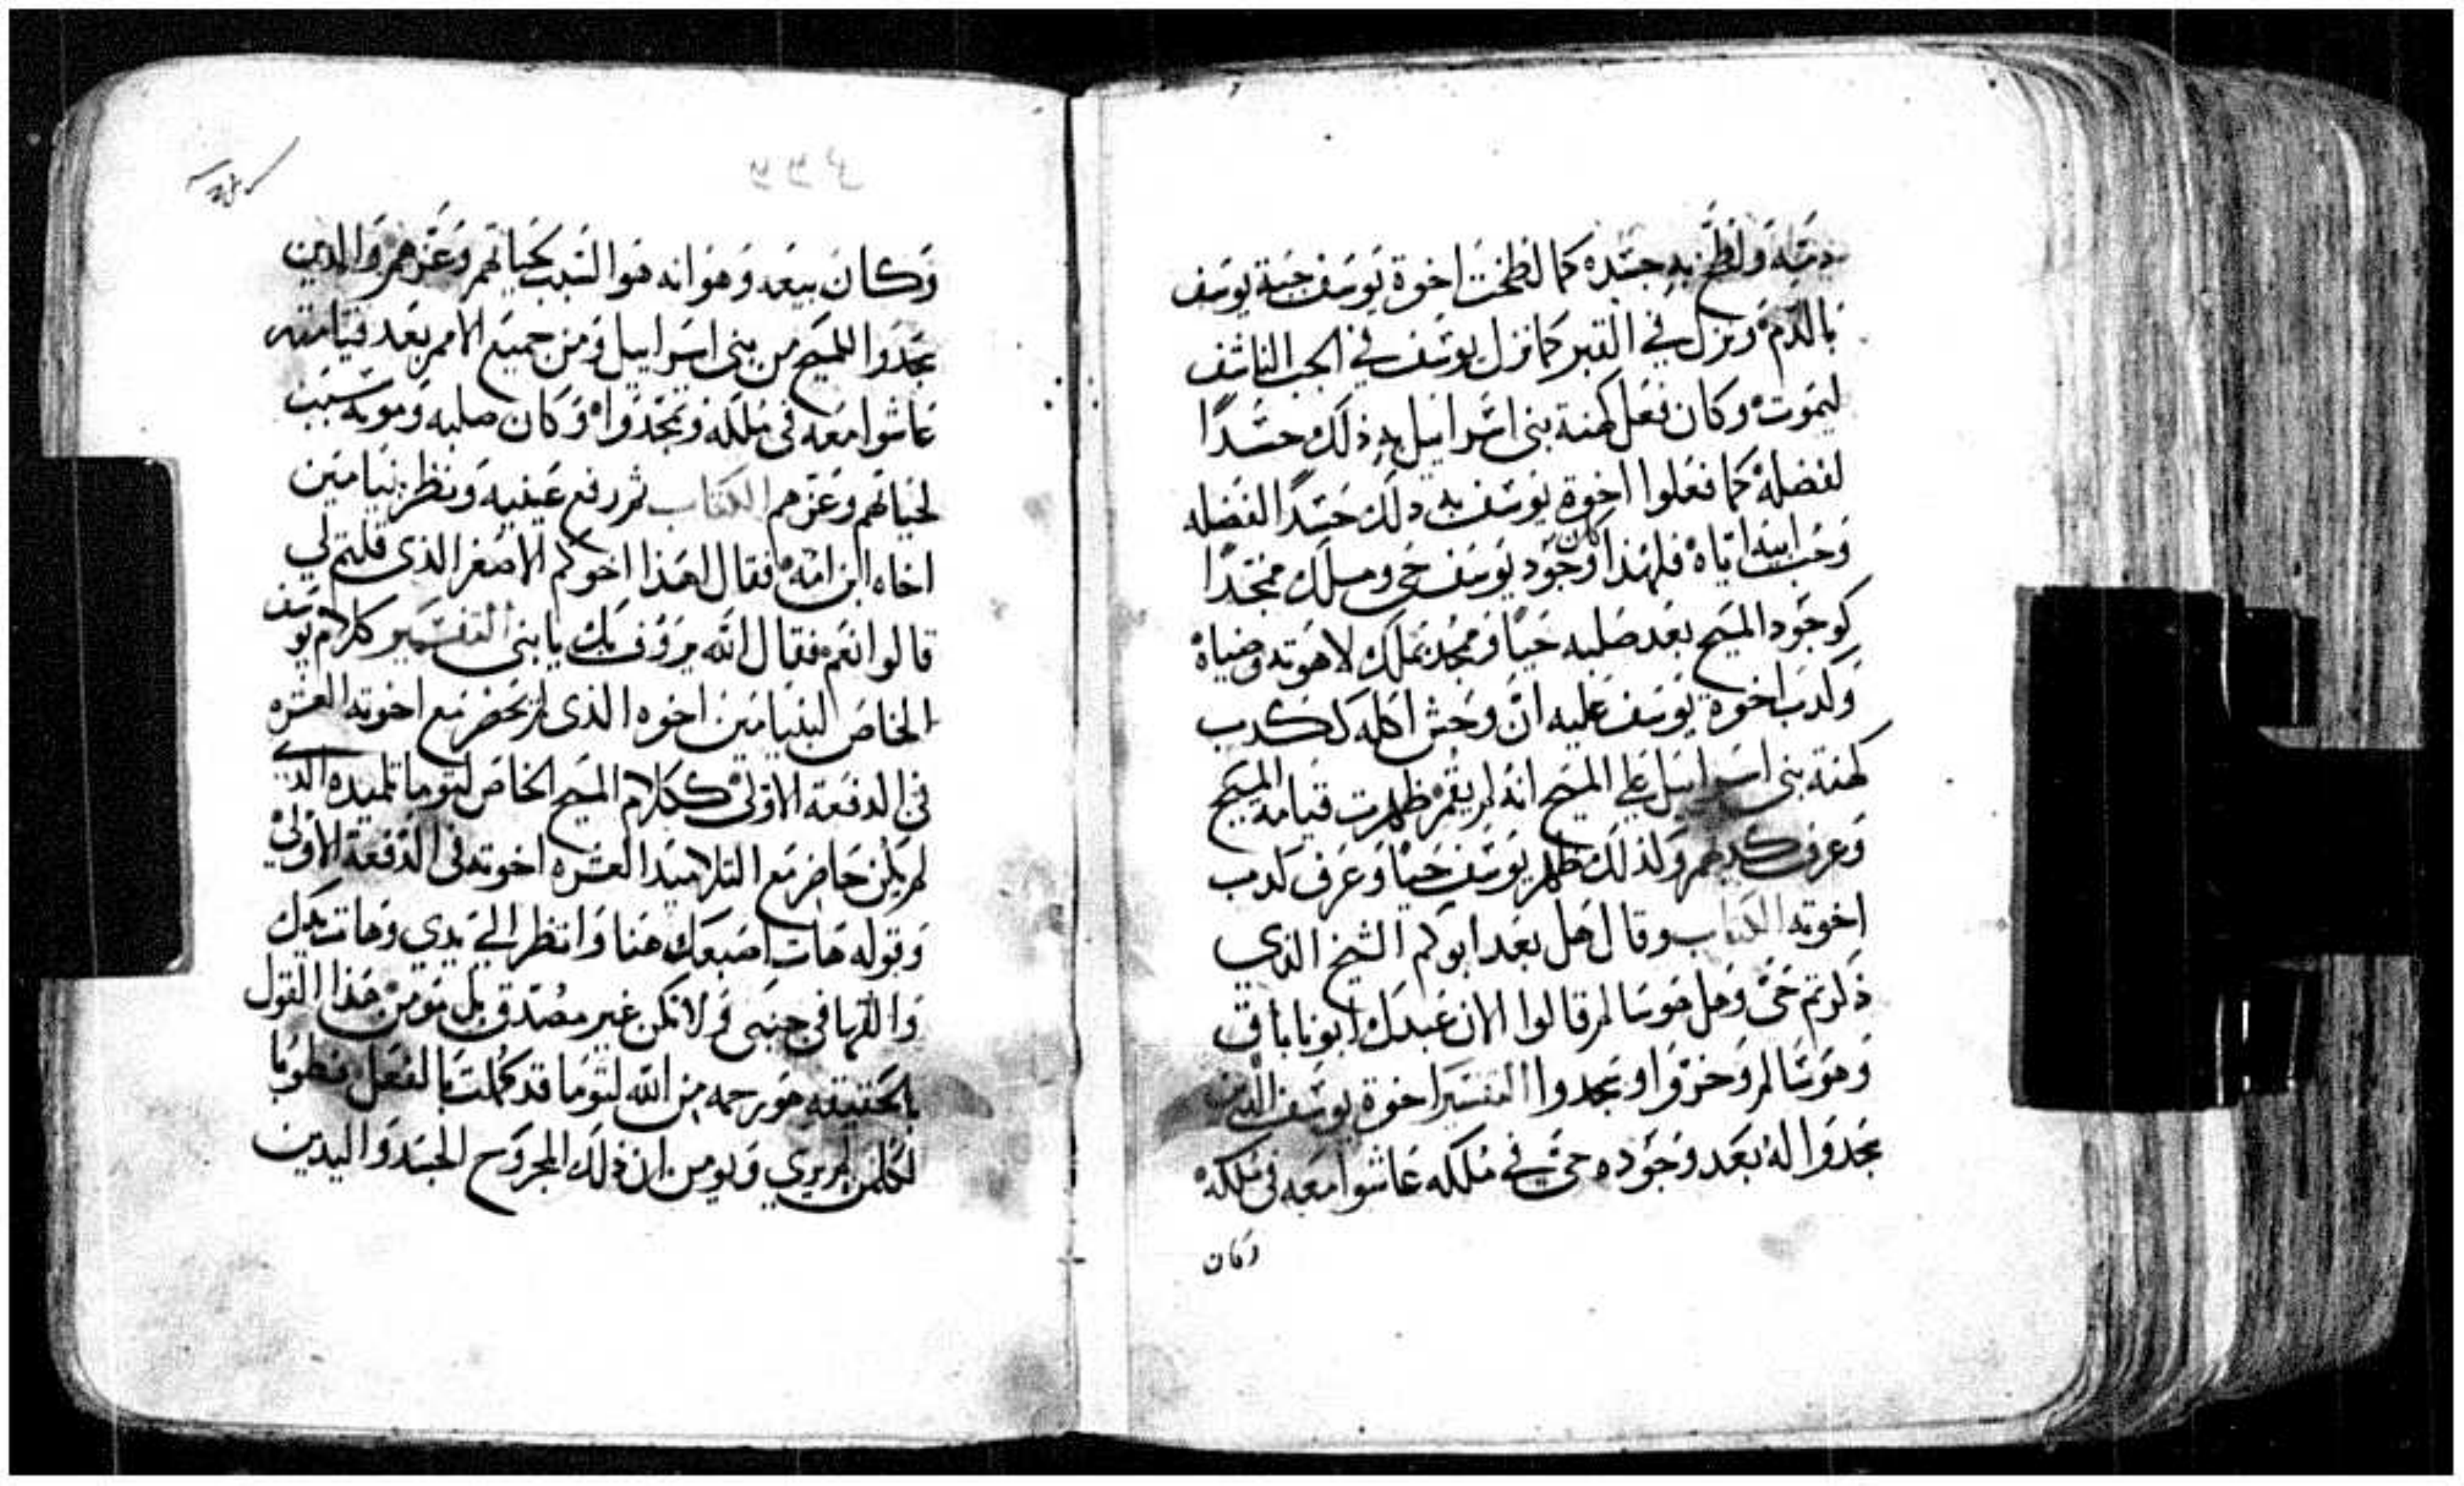 دمه ولطخ به جسده كما لطخت اخوة يوسف جبة يوسف
بالدم ونزل في القبر كما نزل يوسف في الجب الناشف
ليموت وكان فعل كهنة بني اسراييل به ذلك حسدًا
لفضله كما فعلوا اخوة يوسف به دلك حسدًا لفضله
وحب ابيه اياه فلهذا كان وجود يوسف حي وملك ممجدًا
كوجود المسيح بعد صلبه حيًا وممجد بملك لاهوته وضياه
وكدب اخوة يوسف عليه ان وحش اكله ككدب
كهنة بني اسراييل على المسيح انه لم يقم ظهرت قيامة المسيح
وعرف كدبهم ولذلك ظهر يوسف حيًا وعرف كدب
اخوته الكتاب وقال هل بعد ابوكم الشيخ الذي
ذكرتم حي وهل هو سالم قالوا الان عبدك ابونا باقي
وهو سالم وخروا وسجدوا التفسير اخوة يوسف الذين
سجدوا له بعد وجوده حي في ملكه عاشوا معه في ملكه
وكان
وكان بيعه وهوانه هو السبب لحياتهم وعزهم والدين
سجدوا للمسيح من بني اسراييل ومن جميع الامم بعد قيامته
عاشوا معه في ملكه وتمجدوا وكان صلبه وموته سبب
لحياتهم وعزهم الكتاب ثم رفع عينيه ونظر بنيامين
اخاه ابن امه فقال اهذا اخوكم الاصغر الذي قلتم لي
قالوا نعم فقال الله يروف بك يا بني التفسير كلام يوسف
الخاص لبنيامين اخوه الذي لم يحضر مع اخوته العشره
في الدفعة الاولى ككلام المسيح الخاص لتوما تلميده الدي
لم يكن حاضر مع التلاميد العشره اخوته في الدفعة الاولى
وقوله هات اصبعك هنا وانظر الي يدي وهات يدك
والقها في جنبي ولا تكن غير مصدق بل مومن هذا القول
بالحقيقه هو رحمه من الله لتوما قد كملت بالفعل فطوبا
لكلمن لم يري ويومن ان ذلك المجروح الجسد واليدين